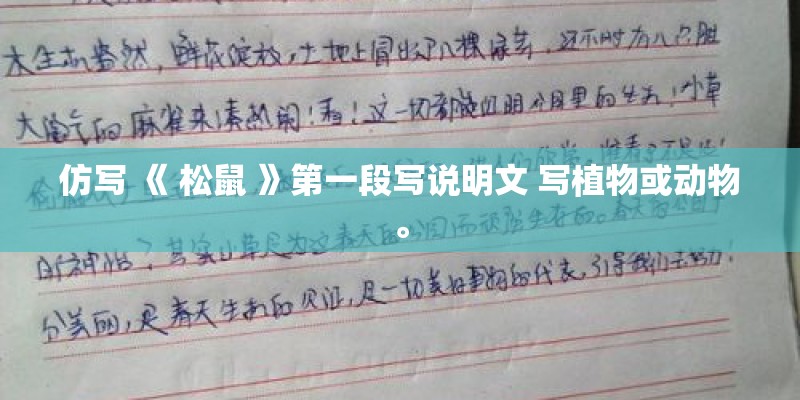 木生机盎然，鲜花绽放，土地上冒出了几棵绿芽，还不时有几只胆
大淘气的麻雀来凑热闹！看！这一切都能证明公园里的生气！小草
仿写 《 松鼠 》第一段写说明文 写植物或动物
。
其实小草是为这春天的公园而顽强生存的。春天的公园十
分美丽，是春天生机的见证，是一切美好事物的代表，引导我们去努力！